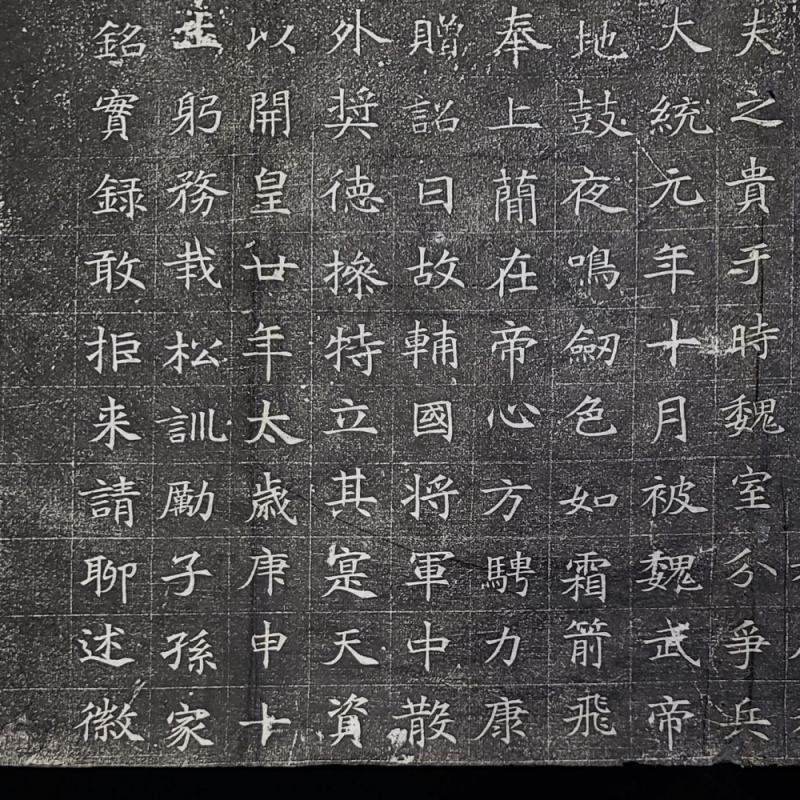 夫之貴于時魏室分爭兵
大統元年十月被魏武帝
地鼓夜鳴劒色如霜箭飛
奉上蕳在帝心方騁力康
贈詔曰故輔國将軍中散
外奨德操特立其寔天資
以開皇廿年太歳庚申十
躬務栽松訓勵子孫家
銘實録敢拒来請聊述徽